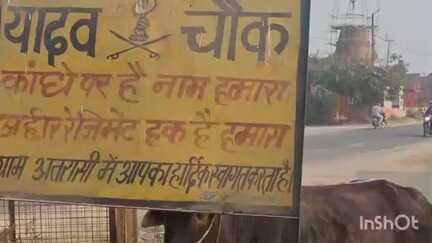 यादव चौक
कांधे पर है नाम हमारा
अहीर रेजिमेंट हक है हमारा
ग्राम अतरासी में आपका हार्दिक स्वागत करता है।
InShOt